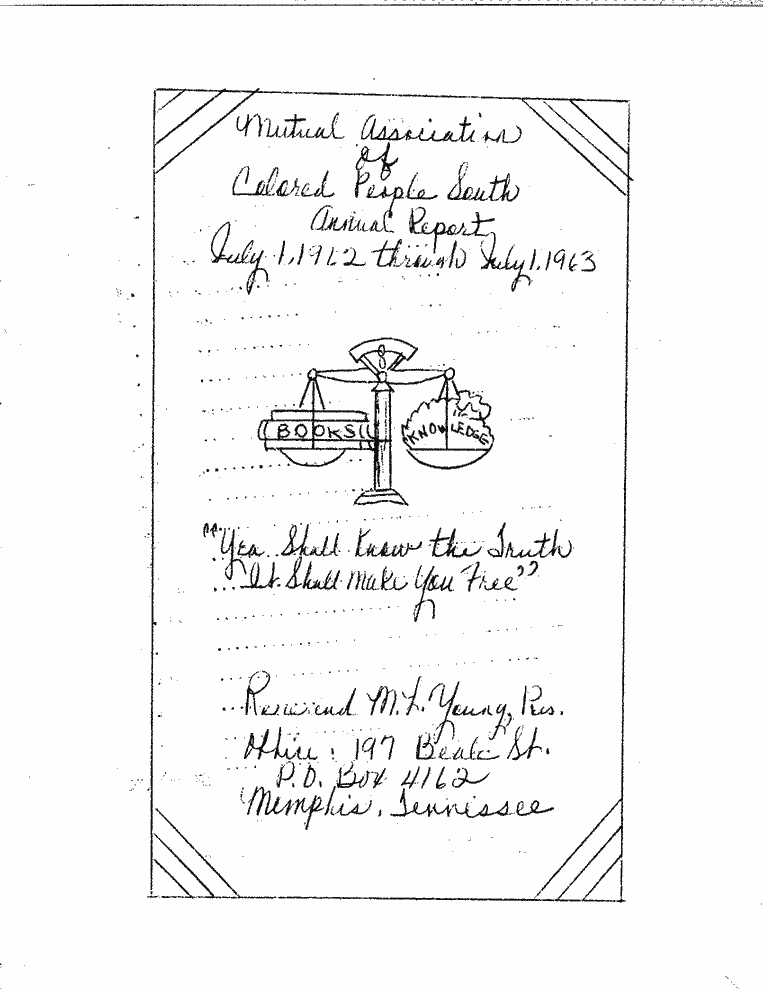 Mutual Association
of
Colored People South
Annual Report
July 1, 1962 through July 1, 1963
8
BOOKS
KNOWLEDGE
"Yea Shall Know the Truth
It Shall Make You Free"
Reverend M. L. Young, Pres.
Office: 197 Beale St.
P.O. Box 4162
Memphis, Tennessee